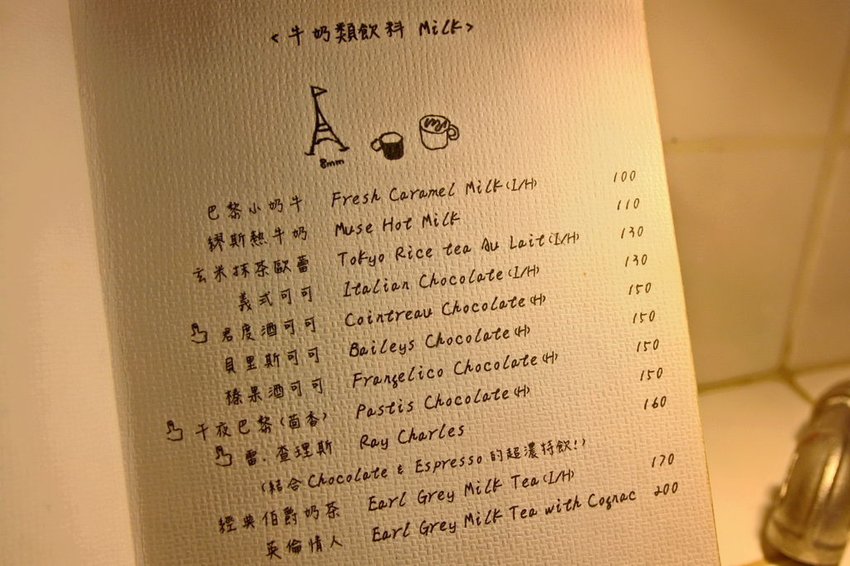 <牛奶類飲料 Milk>
8mm
巴黎小奶牛 Fresh Caramel Milk (I/H) 100
繆斯熱牛奶 Muse Hot Milk 110
玄米抹茶歐蕾 Tokyo Rice tea Au Lait (I/H) 130
義式可可 Italian Chocolate (I/H) 130
君度酒可可 Cointreau Chocolate (H) 150
貝里斯可可 Baileys Chocolate (H) 150
榛果酒可可 Frangelico Chocolate (H) 150
午夜巴黎(茴香) Pastis Chocolate (H) 150
雷.查理斯 Ray Charles 160
(結合 Chocolate & Espresso 的超濃特飲!)
經典伯爵奶茶 Earl Grey Milk Tea (I/H) 170
英倫情人 Earl Grey Milk Tea with Cognac 200